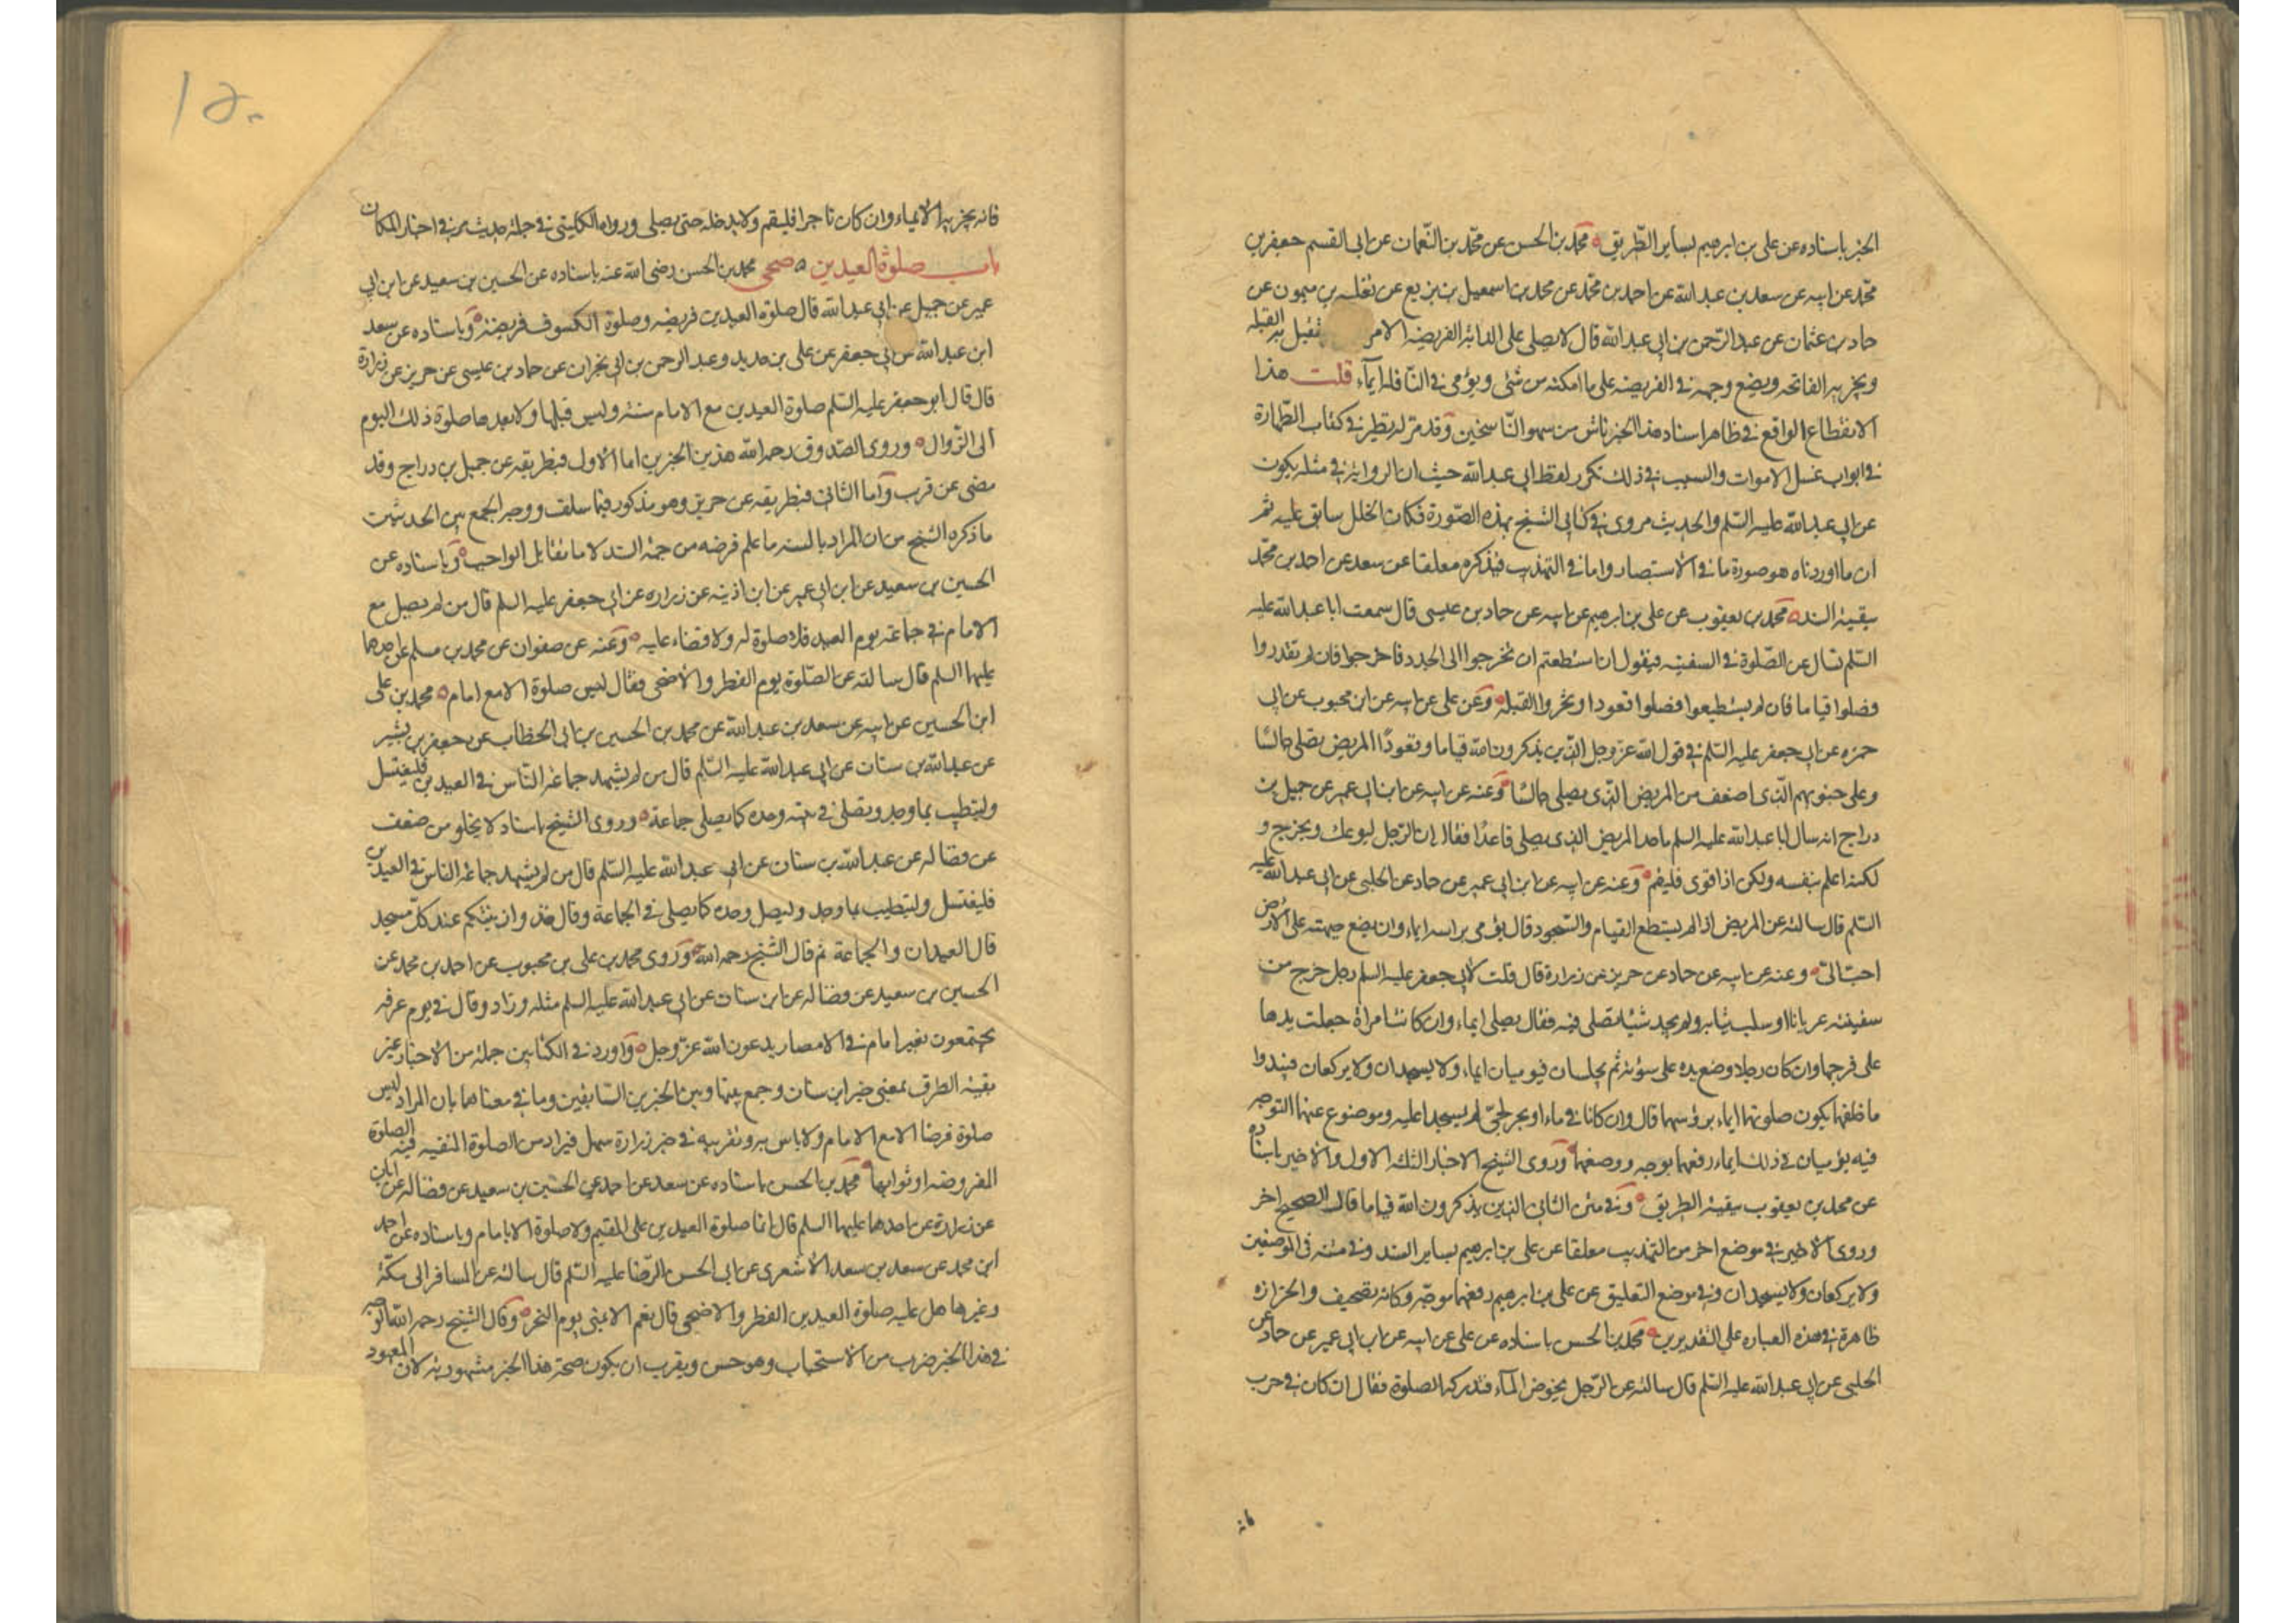 الخبر باسناده عن علي بن ابرهيم بساير الطريق محمد بن الحسن عن محمد بن النعمان عن ابي القسم جعفر بن
محمد عن ابيه عن سعد بن عبد الله عن احمد بن محمد عن محمد بن اسمعيل بن بزيع عن ثعلبه بن ميمون عن
حماد بن عثمان عن عبد الرحمن بن ابي عبد الله قال لا يصلي على الدابة الفريضه الا مر يستقبل به القبله
ويجزيه الفاتحه ويضع وجهه في الفريضه على ما امكنه من شئ ويؤمي في النافلة ايمآء قلت هذا
الانقطاع الواقع في ظاهر اسناد هذا الخبر ناش من سهو الناسخين وقد مر له نظير في كتاب الطهارة
في ابواب غسل الاموات والسبب في ذلك تكرر لفظ ابي عبد الله حيث ان الرواية في مثله يكون
عن ابي عبد الله عليه السلم والحديث مروي في كتابي الشيخ بهذه الصورة فكان الخلل سابق عليه ثم
ان ما اوردناه هو صورة ما في الاستبصار واما في التهذيب فيذكره معلقا عن سعد عن احمد بن محمد
ببقية السند محمد بن يعقوب عن علي بن ابرهيم عن ابيه عن حماد بن عيسى قال سمعت ابا عبد الله عليه
السلم يسال عن الصلوة في السفينه فيقول ان استطعتم ان تخرجوا الى الجدد فاخرجوا فان لم تقدروا
فصلوا قياما فان لم تستطيعوا فصلوا قعودا وتحروا القبلة وعن علي عن ابيه عن ابن محبوب عن ابي
حمزه عن ابي جعفر عليه السلم في قول الله عز وجل الذين يذكرون الله قياما وقعودا المريض يصلي جالسا
وعلى جنوبهم الذي اضعف من المريض الذي يصلي جالسا وعنه عن ابيه عن ابن ابي عمير عن جميل بن
دراج انه سال ابا عبد الله عليه السلم ما حد المريض الذي يصلي قاعدا فقال ان الرجل ليوعك ويحرج و
لكنه اعلم بنفسه ولكن اذا قوى فليقم وعنه عن ابيه عن ابن ابي عمير عن حماد عن الحلبي عن ابي عبد الله عليه
السلم قال سالته عن المريض اذا لم يستطع القيام والسجود قال يؤمي براسه ايماء وان يضع جبهته على الارض
احب الى وعنه عن ابيه عن حماد عن حريز عن زرارة قال قلت لابي جعفر عليه السلم رجل خرج من
سفينته عريانا او سلب ثيابه ولم يجد شيئا يصلي فيه فقال يصلي ايماء وان كانت امراة جعلت يدها
على فرجها وان كان رجلا وضع يده على سوئته ثم يجلسان فيوميان ايماء ولا يسجدان ولا يركعان فيبدوا
ما خلفهما يكون صلوتهما ايماء برؤسهما قال وان كانا في ماء او بحر لجي لم يسجدا عليه وموضوع عنهما التوجه
فيه يؤميان في ذلك ايماء رفعهما توجه ووضعهما وروى الشيخ الاخبار الثلثه الاول والاخير باسناده
عن محمد بن يعقوب ببقية الطريق وفي متن الثاني الذين يذكرون الله قياما قال الصحيح اخر
وروى الاخير في موضع اخر من التهذيب معلقا عن علي بن ابرهيم بساير السند وفي متنه في الموضعين
ولا يركعان ولا يسجدان وفي موضع التعليق عن علي بن ابرهيم رفعهما موجه وكانه تصحيف والحزازه
ظاهرة في هذه العباره على التقديرين محمد بن الحسن باسناده عن علي عن ابيه عن ابن ابي عمير عن حماد عن
الحلبي عن ابي عبد الله عليه السلم قال سالته عن الرجل يخوض المآء فتدركه الصلوة فقال ان كان في حرب
فانه
فانه يجزيه الايماء وان كان تاجرا فليقم ولا يدخله حتى يصلي ورواه الكليني في جملة حديث مر في اخبار المكان
باب صلوة العيدين صحي محمد بن الحسن رضي الله عنه باسناده عن الحسين بن سعيد عن ابن ابي
عمير عن جميل عن ابي عبد الله قال صلوة العيدين فريضه وصلوة الكسوف فريضة وباسناده عن سعد
ابن عبد الله عن ابي جعفر عن علي بن حديد وعبد الرحمن بن ابي نجران عن حماد بن عيسى عن حريز عن زرارة
قال قال ابو جعفر عليه السلم صلوة العيدين مع الامام سنة وليس قبلها ولا بعدها صلوة ذلك اليوم
الى الزوال وروى الصدوق رحمه الله هذين الخبرين اما الاول فبطريقه عن جميل بن دراج وقد
مضى عن قرب واما الثاني فبطريقه عن حريز وهو مذكور فيما سلف ووجه الجمع بين الحديثين
ما ذكره الشيخ من ان المراد بالسنه ما علم فرضه من جهة السنة لا ما يقابل الواجب وباسناده عن
الحسين بن سعيد عن ابن ابي عمير عن ابن اذينه عن زراره عن ابي جعفر عليه السلم قال من لم يصل مع
الامام في جماعة يوم العيد فلا صلوة له ولا قضاء عليه وعنه عن صفوان عن محمد بن مسلم عن احدهما
عليهما السلم قال سالته عن الصلوة يوم الفطر والاضحى فقال ليس صلوة الا مع امام محمد بن علي
ابن الحسين عن ابيه عن سعد بن عبد الله عن محمد بن الحسين بن ابي الخطاب عن جعفر بن بشير
عن عبد الله بن سنان عن ابي عبد الله عليه السلم قال من لم يشهد جماعة الناس في العيدين فليغتسل
وليتطيب بما وجد ويصلي في بيته وحده كما يصلي جماعة وروى الشيخ باسناد لا يخلو من ضعف
عن فضاله عن عبد الله بن سنان عن ابي عبد الله عليه السلم قال من لم يشهد جماعة الناس في العيدين
فليغتسل وليتطيب بما وجد وليصل وحده كما يصلي في الجماعة وقال خذوا زينتكم عند كل مسجد
قال العيدان والجماعة ثم قال الشيخ رحمه الله وروى محمد بن علي بن محبوب عن احمد بن محمد عن
الحسين بن سعيد عن فضاله عن ابن سنان عن ابي عبد الله عليه السلم مثله وزاد وقال في يوم عرفه
يجتمعون بغير امام في الامصار يدعون الله عز وجل واورد في الكتابين جملة من الاخبار عير
بقية الطرق بمعنى خبر ابن سنان وجمع بينها وبين الخبرين السابقين وما في معناهما بان المراد ليس
صلوة فرضا الا مع الامام ولا باس به وتقريبه في خبر زرارة سهل فيراد من الصلوة المنفيه فيه الصلوة
المفروضه او ثوابها محمد بن الحسن باسناده عن سعد عن احمد عن الحسين بن سعيد عن فضاله عن ابان
عن زرارة عن احدهما عليهما السلم قال انما صلوة العيدين على المقيم ولا صلوة الا بامام وباسناده عن احمد
ابن محمد عن سعد بن سعد الاشعري عن ابي الحسن الرضا عليه السلم قال سالته عن المسافر الى مكة
وغيرها هل عليه صلوة العيدين الفطر والاضحى قال نعم الا بمنى يوم النحر وقال الشيخ رحمه الله الوجه
في هذا الخبر ضرب من الاستحباب وهو حسن ويقرب ان يكون صحة هذا الخبر مشهورية لان المعهود